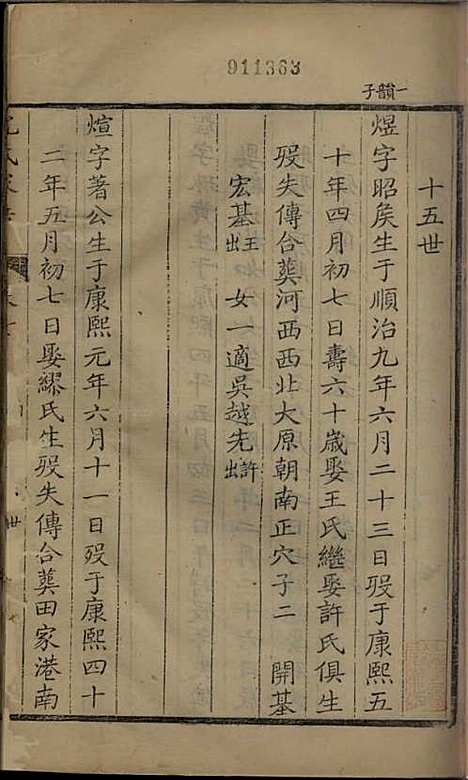 911363
一韻子
十五世
煜字昭矦生于順治九年六月二十三日歿于康熙五
十年四月初七日壽六十歲娶王氏繼娶許氏俱生
歿失傳合葬河西西北大原朝南正穴子二 開基
宏基王出 女一適吳越先許出
煊字著公生于康熙元年六月十一日歿于康熙四十
二年五月初七日娶繆氏生歿失傳合葬田家港南